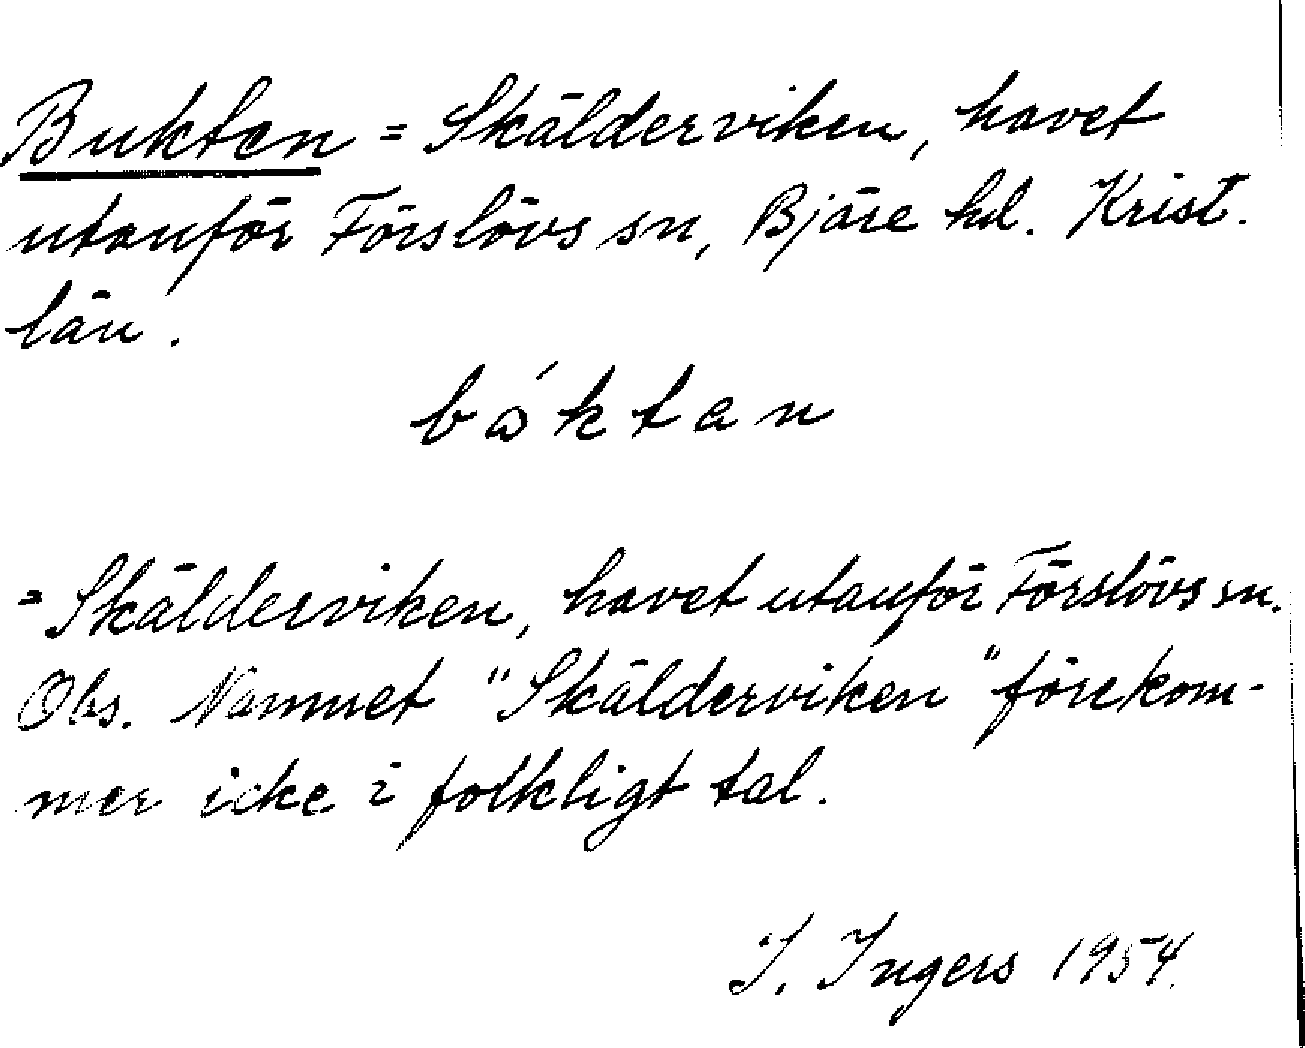 Bukten = Skälderviken, havet
utanför Förslövs sn, Bjäre hd. Krist.
län.
bǻktan
= Skälderviken, havet utanför Förslövs sn.
Obs. Namnet "Skälderviken" förekom-
mer icke i folkligt tal.
I. Ingers 1954.